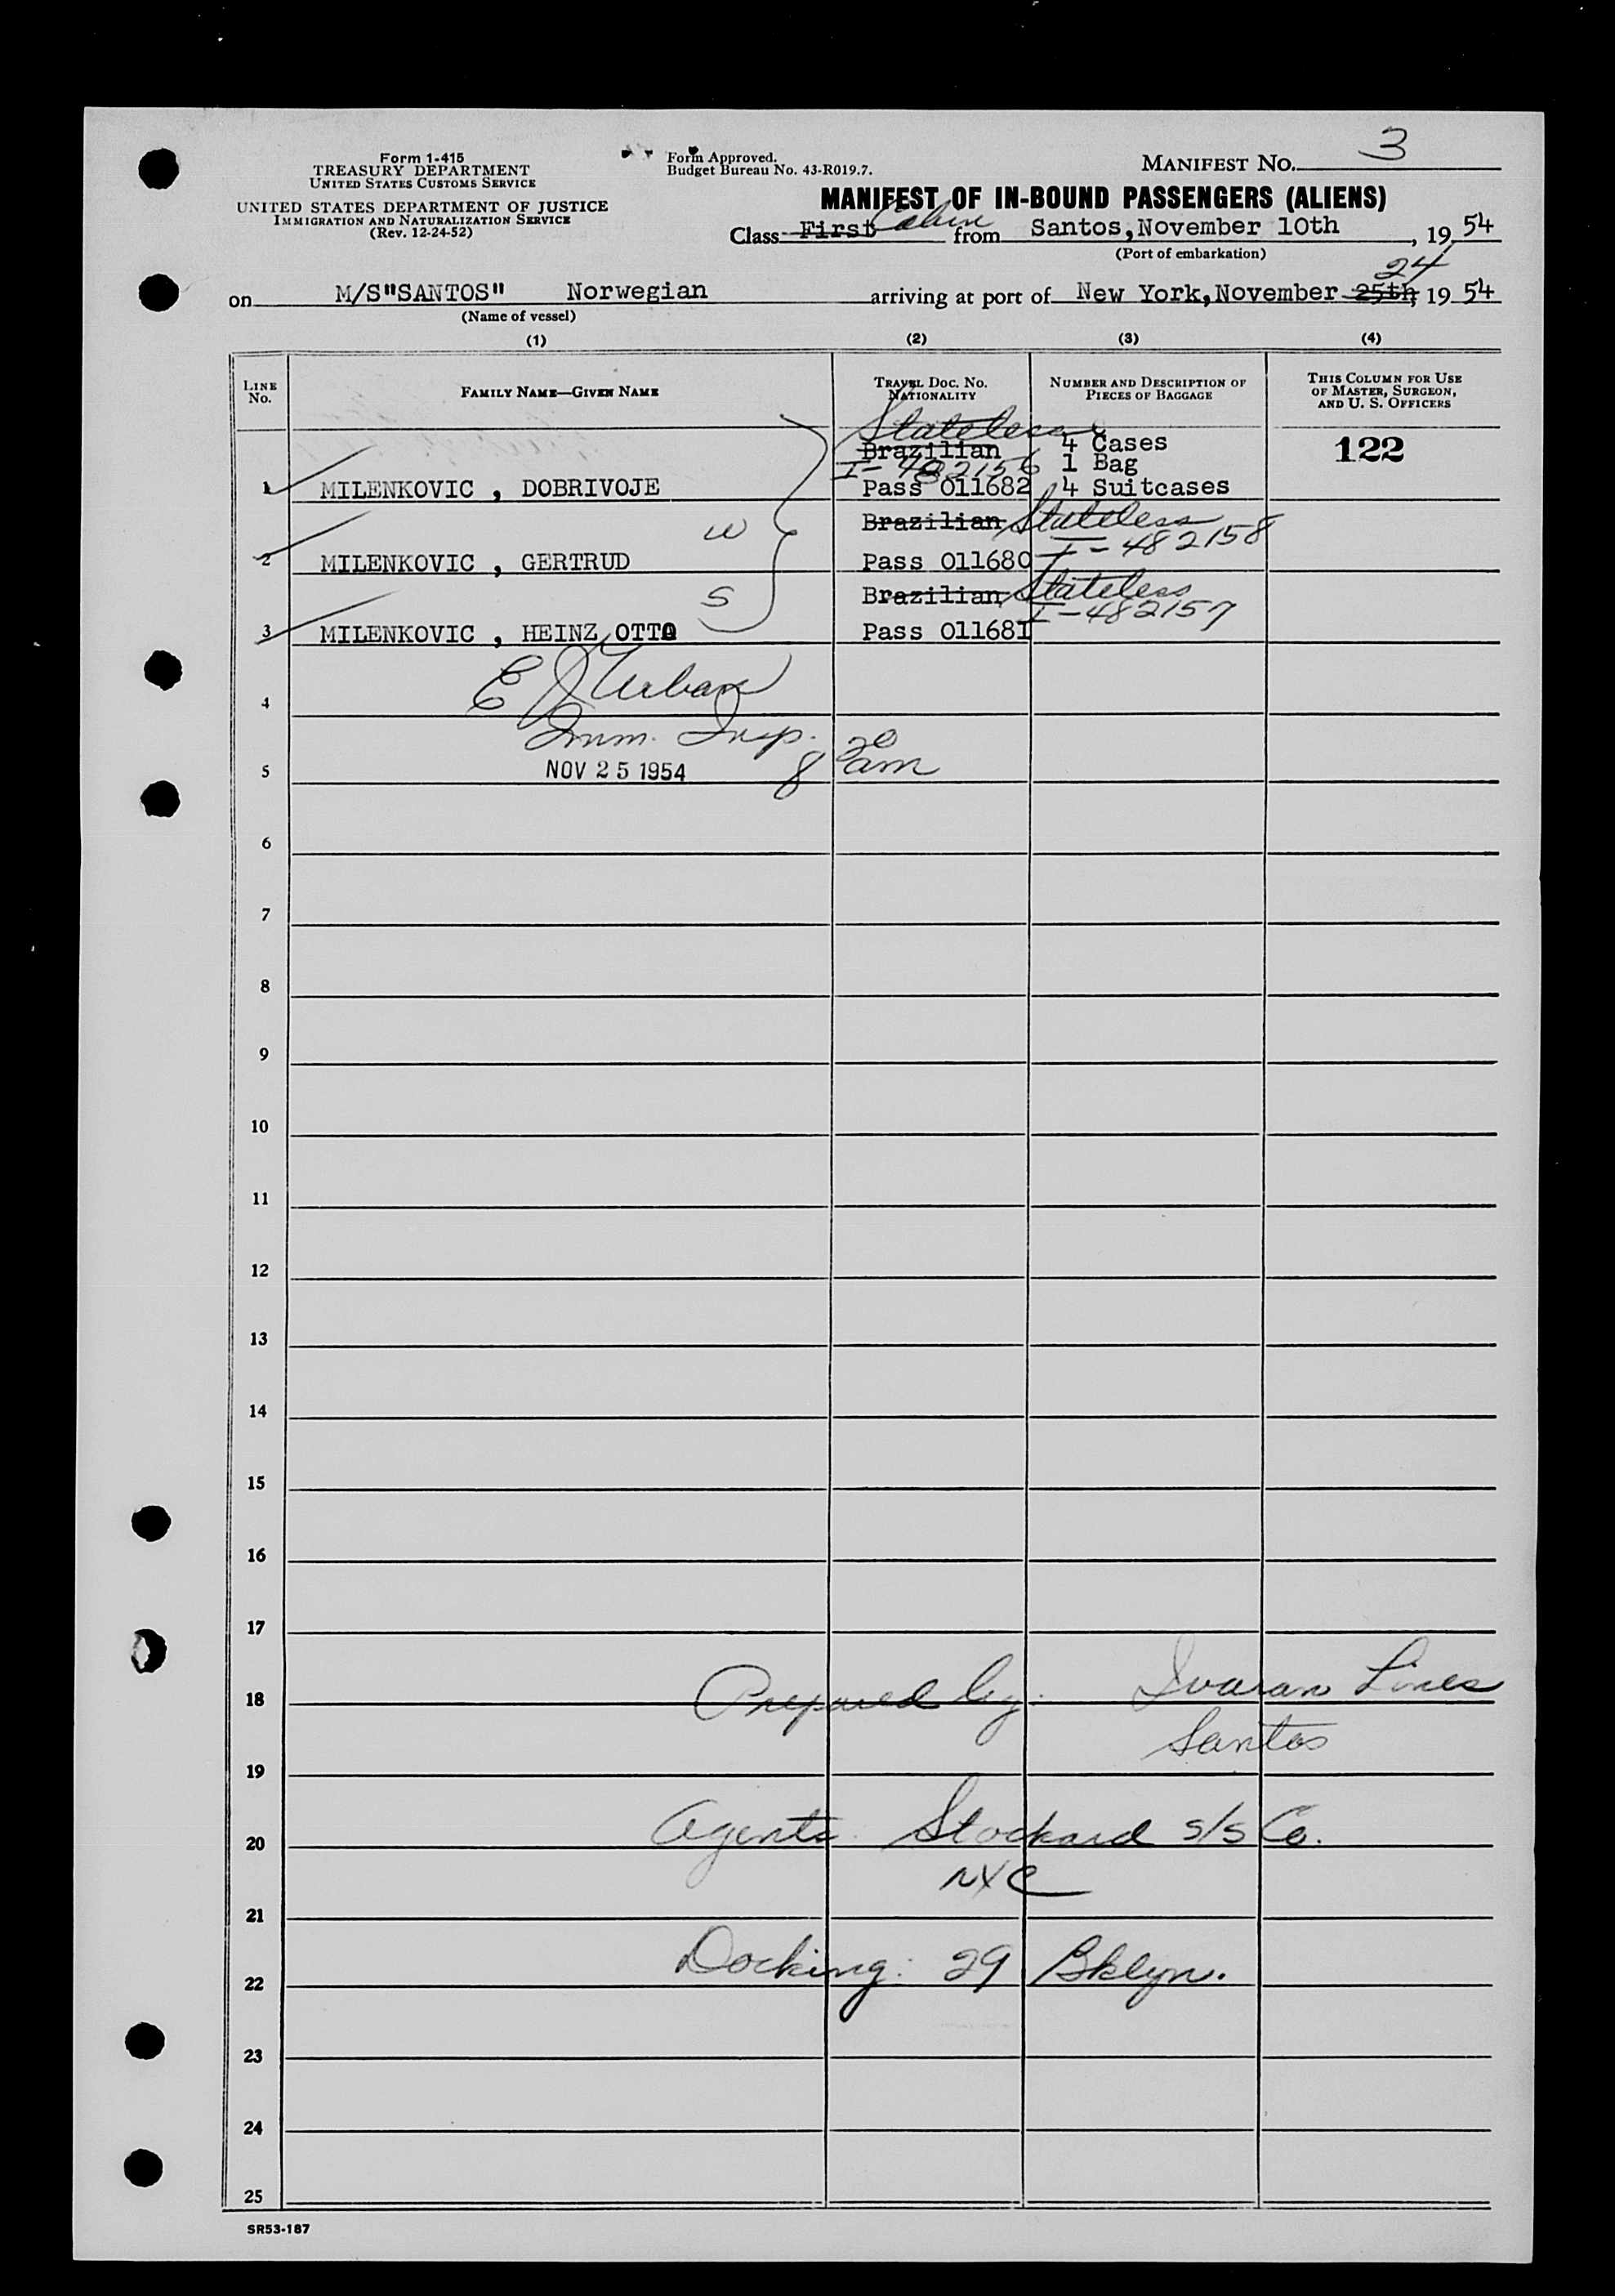 Form 1-415
TREASURY DEPARTMENT
UNITED STATES CUSTOMS SERVICE
UNITED STATES DEPARTMENT OF JUSTICE
IMMIGRATION AND NATURALIZATION SERVICE
(Rev. 12-24-52)
Form Approved.
Budget Bureau No. 43-R019.7.
MANIFEST NO. 3
MANIFEST OF IN-BOUND PASSENGERS (ALIENS)
Class First Cabin from Santos, November 10th, 19 54
(Port of embarkation)
24
on M/S"SANTOS" Norwegian arriving at port of New York, November 25th, 19 54
(Name of vessel)
(1) (2) (3) (4)
LINE No. FAMILY NAME—GIVEN NAME TRAVEL DOC. NO. NATIONALITY NUMBER AND DESCRIPTION OF PIECES OF BAGGAGE THIS COLUMN FOR USE OF MASTER, SURGEON, AND U. S. OFFICERS
Stateless
Brazilian 4 Cases 122
I-482156 1 Bag
1 MILENKOVIC , DOBRIVOJE Pass 011682 4 Suitcases
W Brazilian Stateless
I-482158
2 MILENKOVIC , GERTRUD Pass 011680
S Brazilian Stateless
I-482157
3 MILENKOVIC , HEINZ OTTO Pass 011681
E J Urban
4
Imm. Insp.
5 NOV 25 1954 8 20 am
6
7
8
9
10
11
12
13
14
15
16
17
18 Prepared by: Ivaran Lines
Santos
19
20 Agents: Stockard S/S Co.
NYC
21
22 Docking: 29 Bklyn.
23
24
25
SR53-187